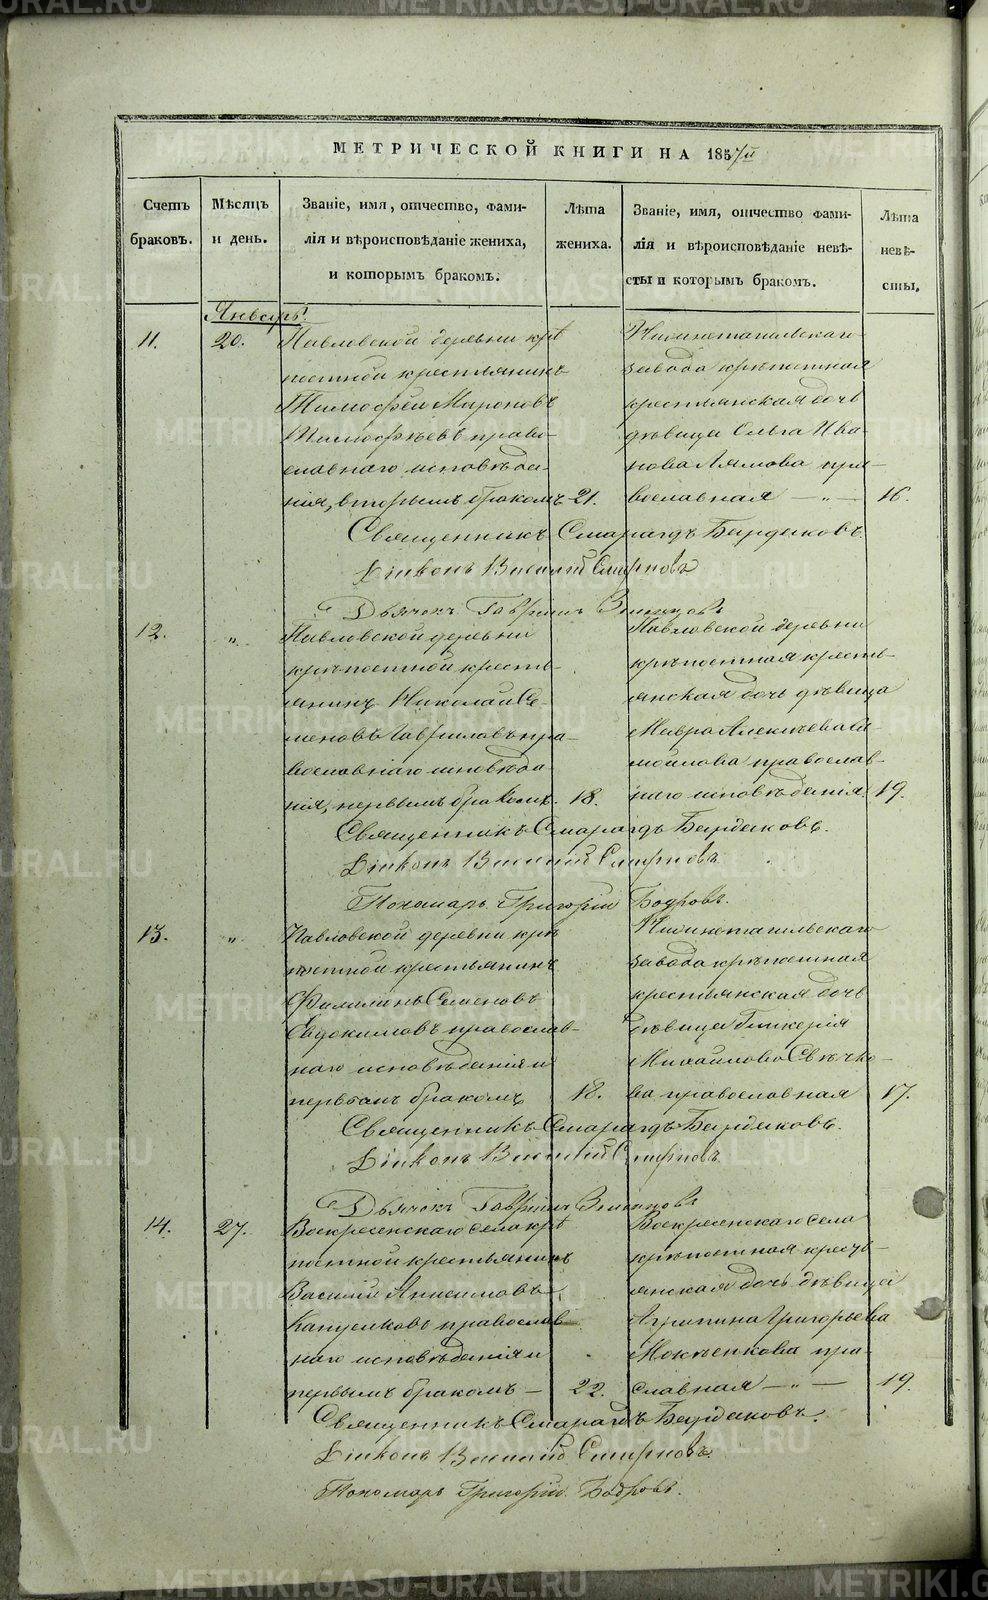 МЕТРИЧЕСКОЙ КНИГИ НА 1857й
Счетъ браковъ.
Мѣсяцъ и день.
Званіе, имя, отчество, фами-
лія и вѣроисповѣданіе жениха,
и которымъ бракомъ.
Лѣта жениха.
Званіе, имя, отчество фами-
лія и вѣроисповѣданіе невѣ-
сты и которымъ бракомъ.
Лѣта невѣ-
сты.
Январь.
11.
20.
Павловской деревни крѣ
постной крестьянинъ
Тимофей Мироновъ
Тимофѣевъ право-
славнаго исповѣда-
нія, вторымъ бракомъ
21.
Нижнетагильскаго
завода крѣпостная
крестьянская дочь
дѣвица Ольга Ива-
нова Лямова пра-
вославная — „ —
16.
Священникъ Смарагдъ Бирюковъ.
Діаконъ Василій Смирновъ
Дьячокъ Гавріилъ
12.
„
Павловской деревни
крѣпостной кресть-
янинъ Николай Се-
меновъ Гавриловъ пра-
вославнаго исповѣда
нія, первымъ бракомъ.
18.
Павловской деревни
крѣпостная кресть-
янская дочь дѣвица
Мавра Алексѣева Са
мойлова православ-
наго исповѣданія
19.
Священникъ Смарагдъ Бирюковъ.
Діаконъ Василій Смирновъ.
Пономарь Григорій Бобровъ.
13.
„
Павловской деревни крѣ
постной крестьянинъ
Семеновъ
Евдокимовъ православ-
наго исповѣданія и
первымъ бракомъ
18.
Нижнетагильскаго
завода крѣпостная
крестьянская дочь
дѣвица Гликерія
Михайлова Свѣчко-
ва православная
17.
Священникъ Смарагдъ Бирюковъ.
Діаконъ Василій Смирновъ.
Дьячокъ Гавріилъ
14.
27.
Воскресенскаго села крѣ
постной крестьянинъ
Василій Анисимовъ
православ
наго исповѣданія и
первымъ бракомъ —
22.
Воскресенскаго села
крѣпостная кресть-
янская дочь дѣвица
Агрипина Григорьева
Мокѣенкова пра-
славная — „ —
19.
Священникъ Смарагдъ Бирюковъ.
Діаконъ Василій Смирновъ.
Пономарь Григорій Бобровъ.
METRIKI.GASO-URAL.RU